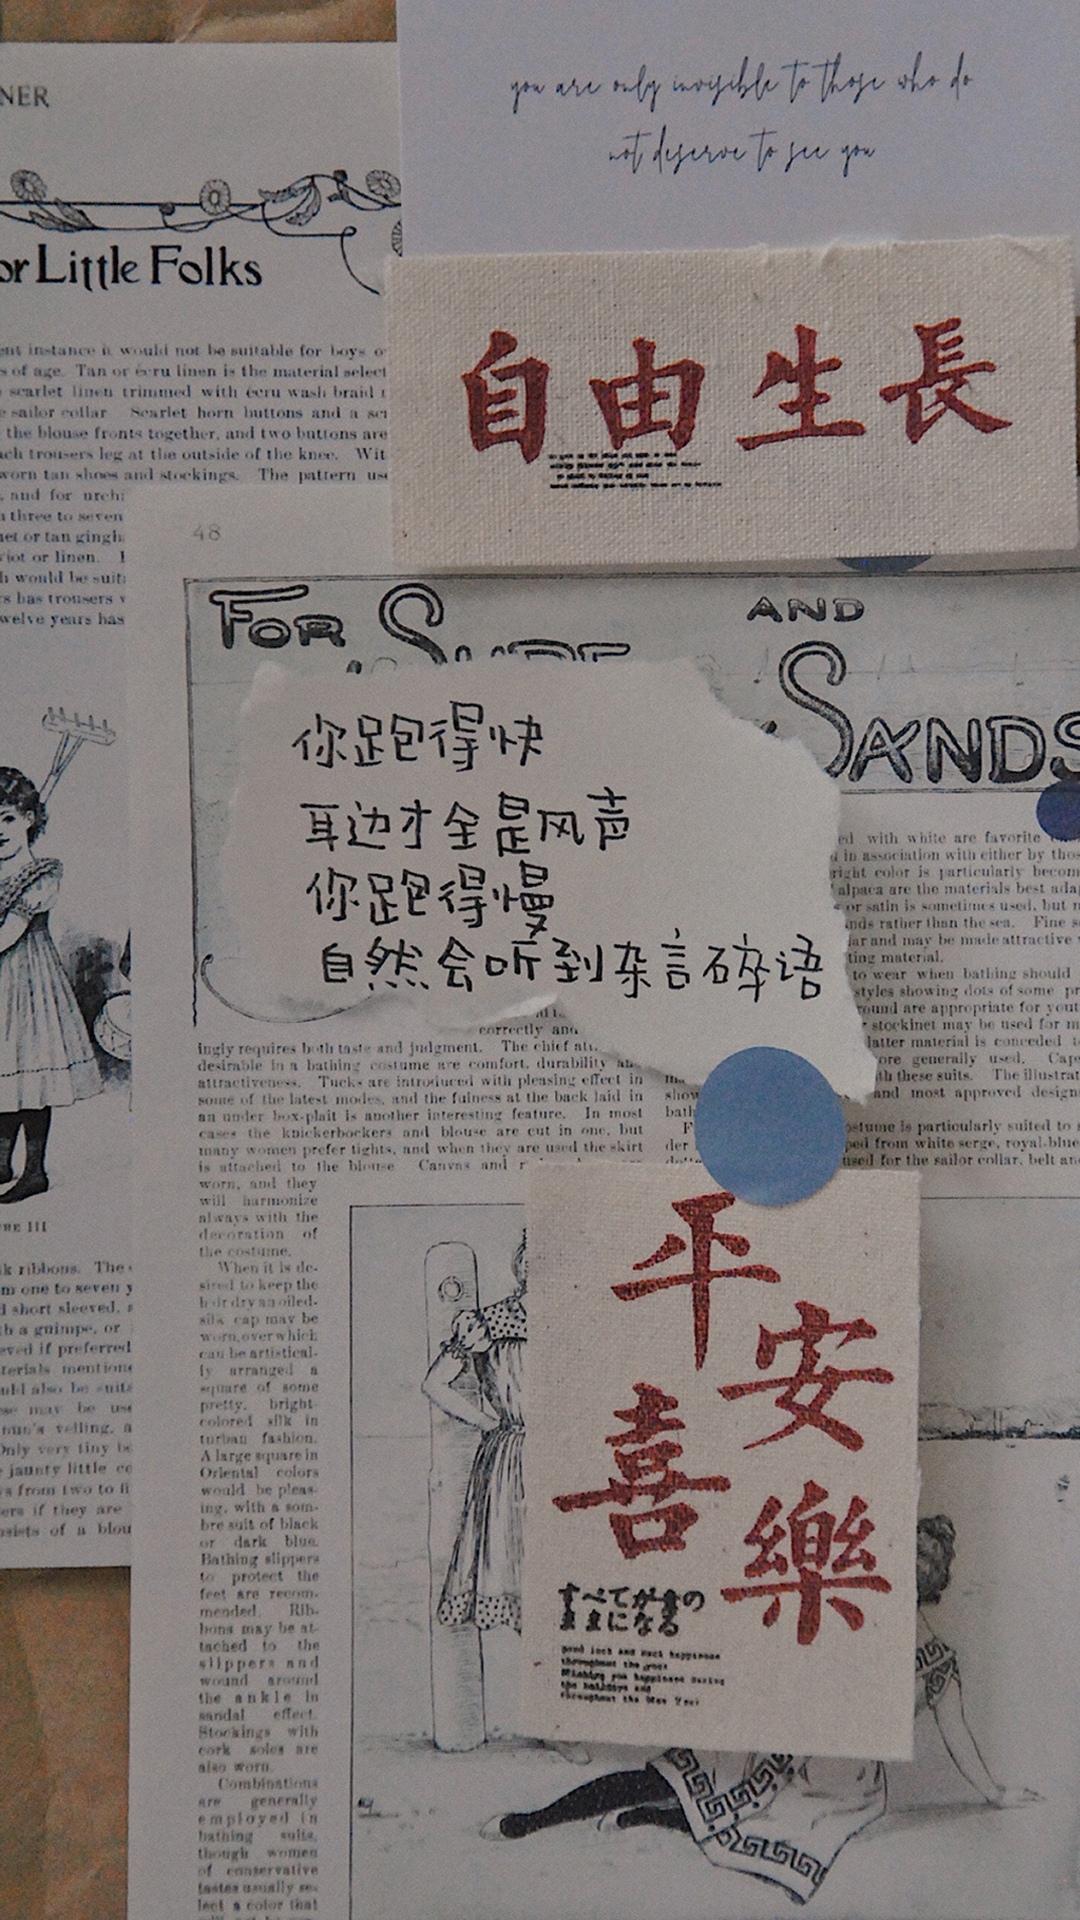 NER
you are only invisible to those who do
not deserve to see you
or Little Folks
自由生長
instance it would not be suitable for boys
of age. Tan or écru linen is the material select
scarlet linen trimmed with écru wash braid
sailor collar Scarlet horn buttons and a
the blouse fronts together, and two buttons are
trousers leg at the outside of the knee. Wit
worn tan shoes and stockings. The pattern
and for
three to seven
or tan
or linen.
would be
has trousers
twelve years has
48
FOR
AND
SANDS
你跑得快
耳边才全是风声
你跑得慢
自然会听到杂言碎语
with white are favorite
in association with either by
color is particularly
alpaca are the materials best
or satin is sometimes used, but
rather than the sea. Fine
and may be made attractive
material.
to wear when bathing should
styles showing dots of some
are appropriate for
stockinet may be used for
latter material is conceded
generally used.
these suits. The
and most approved
costume is particularly suited to
from white serge,
used for the sailor collar, belt
correctly and
ingly requires both taste and judgment. The chief
desirable in a bathing costume are comfort, durability
attractiveness. Tucks are introduced with pleasing effect in
some of the latest modes, and the fulness at the back laid in
an under box-plait is another interesting feature. In most
cases the knickerbockers and blouse are cut in one, but
many women prefer tights, and when they are used the skirt
is attached to the blouse Canvas and
worn, and they
will harmonize
always with the
decoration of
the costume.
When it is de-
sired to keep the
hair dry an oiled-
silk cap may be
worn, over which
can be artistical-
ly arranged a
square of some
pretty, bright-
colored silk in
turban fashion.
A large square in
Oriental colors
would be pleas-
ing, with a som-
bre suit of black
or dark blue.
Bathing slippers
to protect the
feet are recom-
mended. Rib-
bons may be at-
tached to the
slippers and
wound around
the ankle in
sandal effect.
Stockings with
cork soles are
also worn.
Combinations
are generally
employed in
bathing suits,
though women
of conservative
tastes usually se-
lect a color that
III
ribbons. The
one to seven
short sleeved,
a guimpe, or
if preferred
mentione
also be
may be
veiling,
Only very tiny
jaunty little
from two to
if they are
of a
平安
喜樂
すべてが意の
ままになる
good luck and much happiness
throughout the year
Wishing you happiness during
the holidays and
throughout the New Year